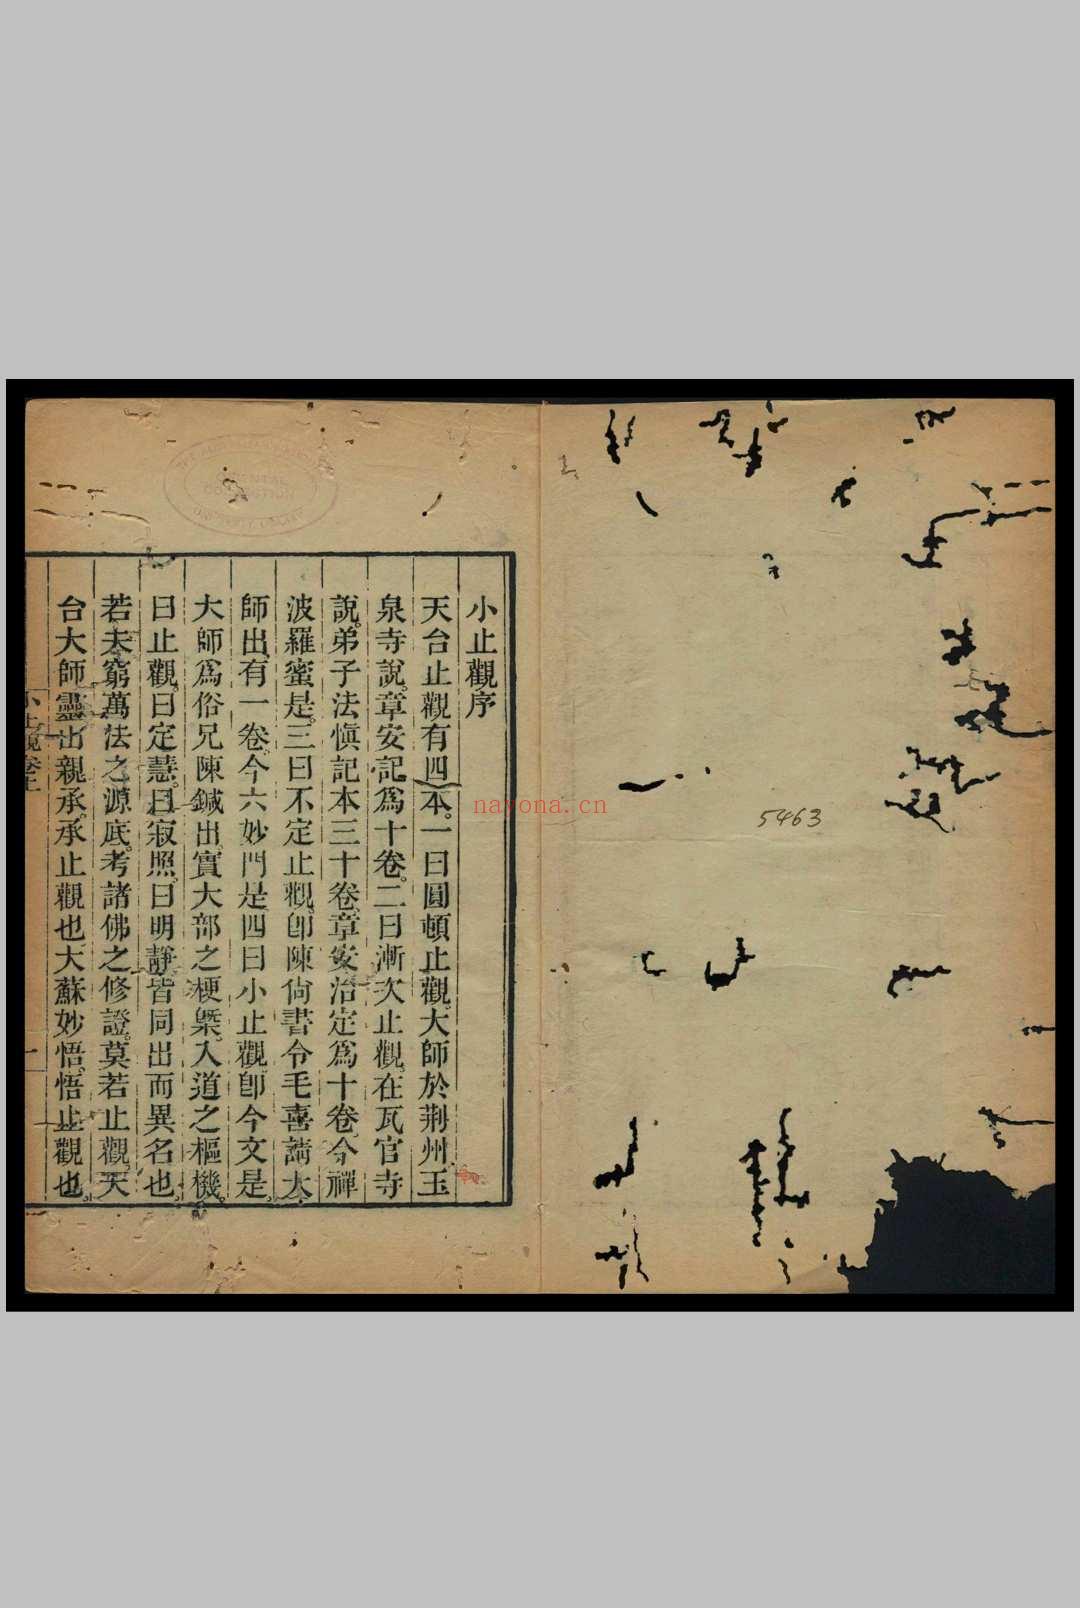 小止觀序
天台止觀有四本。一曰圓頓止觀。大師於荆州玉
泉寺說。章安記爲十卷。二曰漸次止觀。在瓦官寺
說。弟子法愼記。本三十卷。章安治定爲十卷。今禪
波羅蜜是。三曰不定止觀。卽陳尙書令毛喜請大
師出。有一卷。今六妙門是。四曰小止觀。卽今文是。
大師爲俗兄陳鍼出。實大部之梗槩。入道之樞機。
曰止觀。曰定慧。曰寂照。曰明靜。皆同出而異名也。
若夫窮萬法之源底。考諸佛之修證。莫若止觀。天
台大師靈山親承。承止觀也。大蘇妙悟。悟止觀也。
小止觀卷上
一
5463
nayona.cn